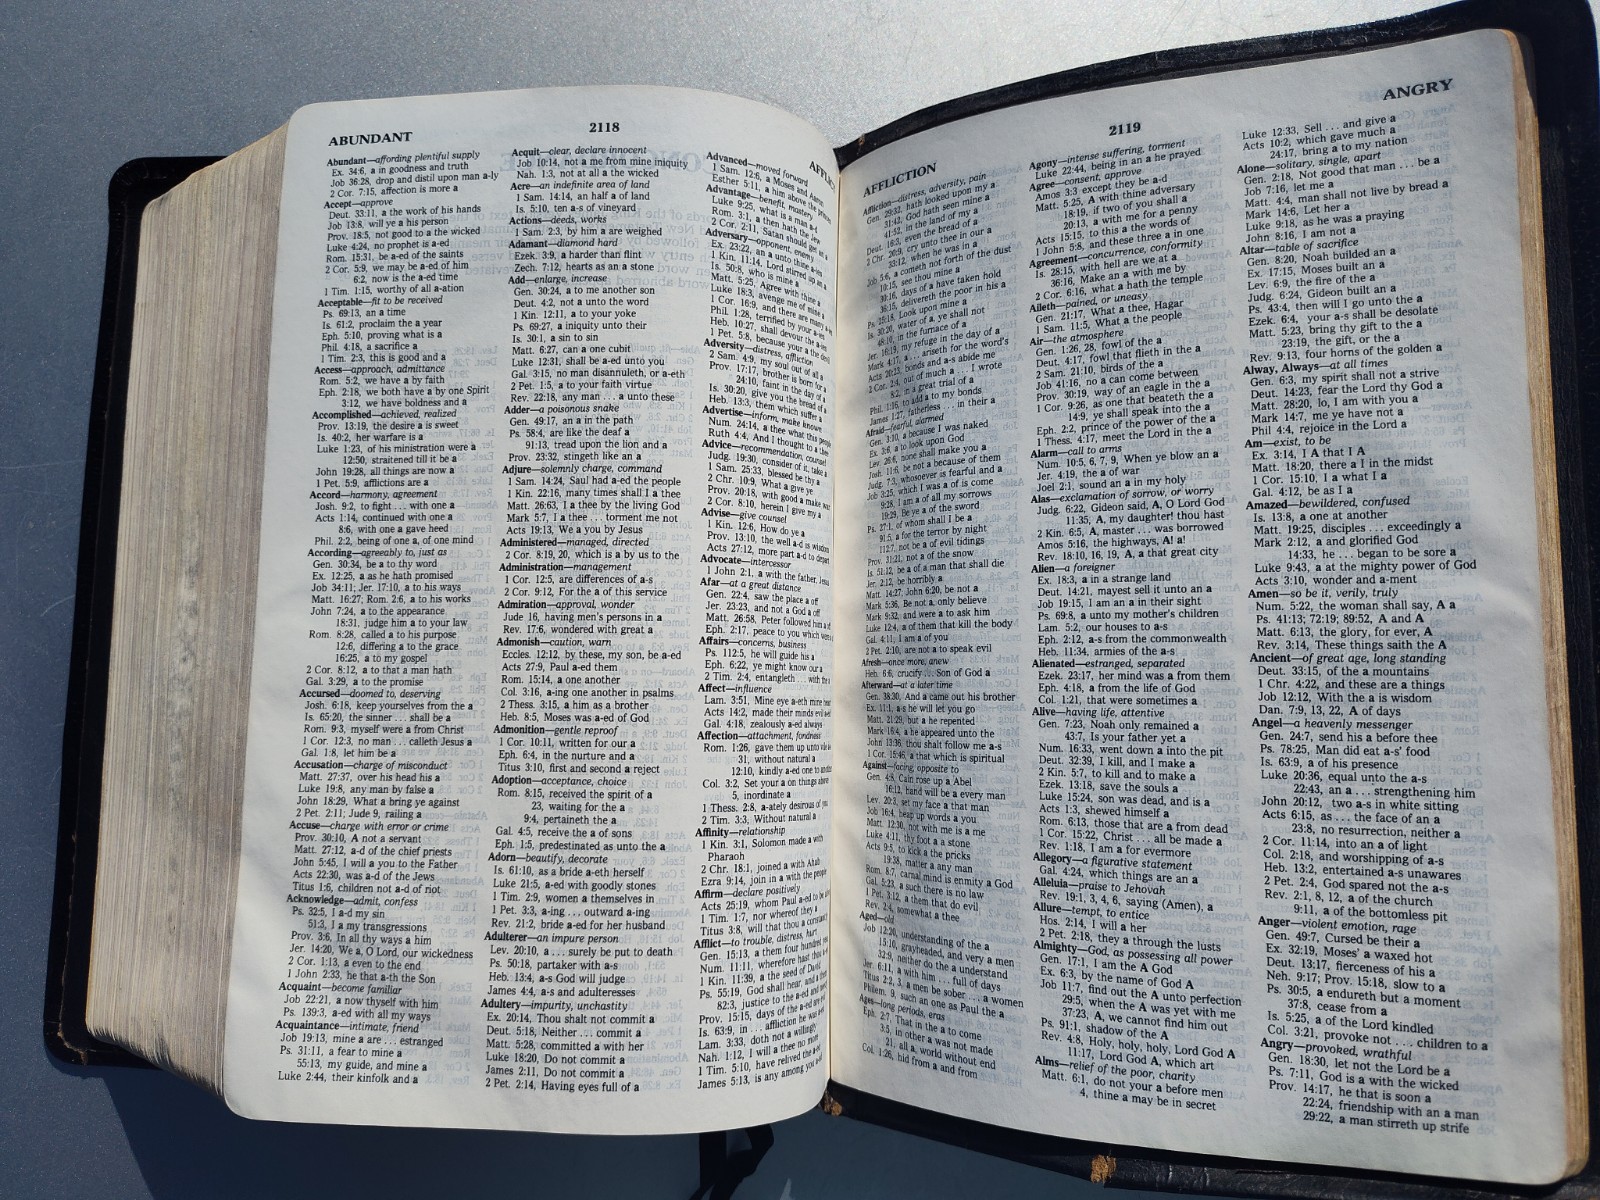 ABUNDANT
2118
Abundant—affording plentiful supply
Ex. 34:6, a in goodness and truth
Job 36:28, drop and distil upon man a-ly
2 Cor. 7:15, affection is more a
Accept—approve
Deut. 33:11, a the work of his hands
Job 13:8, will ye a his person
Prov. 18:5, not good to a the wicked
Luke 4:24, no prophet is a-ed
Rom. 15:31, be a-ed of the saints
2 Cor. 5:9, we may be a-ed of him
6:2, now is the a-ed time
1 Tim. 1:15, worthy of all a-ation
Acceptable—fit to be received
Ps. 69:13, an a time
Is. 61:2, proclaim the a year
Eph. 5:10, proving what is a
Phil. 4:18, a sacrifice a
1 Tim. 2:3, this is good and a
Access—approach, admittance
Rom. 5:2, we have a by faith
Eph. 2:18, we both have a by one Spirit
3:12, we have boldness and a
Accomplished—achieved, realized
Prov. 13:19, the desire a is sweet
Is. 40:2, her warfare is a
Luke 1:23, of his ministration were a
12:50, straitened till it be a
John 19:28, all things are now a
1 Pet. 5:9, afflictions are a
Accord—harmony, agreement
Josh. 9:2, to fight . . . with one a
Acts 1:14, continued with one a
8:6, with one a gave heed
Phil. 2:2, being of one a, of one mind
According—agreeably to, just as
Gen. 30:34, be a to thy word
Ex. 12:25, a as he hath promised
Job 34:11; Jer. 17:10, a to his ways
Matt. 16:27; Rom. 2:6, a to his works
John 7:24, a to the appearance
18:31, judge him a to your law
Rom. 8:28, called a to his purpose
12:6, differing a to the grace
16:25, a to my gospel
2 Cor. 8:12, a to that a man hath
Gal. 3:29, a to the promise
Accursed—doomed to, deserving
Josh. 6:18, keep yourselves from the a
Is. 65:20, the sinner . . . shall be a
Rom. 9:3, myself were a from Christ
1 Cor. 12:3, no man . . . calleth Jesus a
Gal. 1:8, let him be a
Accusation—charge of misconduct
Matt. 27:37, over his head his a
Luke 19:8, any man by false a
John 18:29, What a bring ye against
2 Pet. 2:11; Jude 9, railing a
Accuse—charge with error or crime
Prov. 30:10, A not a servant
Matt. 27:12, a-d of the chief priests
John 5:45, I will a you to the Father
Acts 22:30, was a-d of the Jews
Titus 1:6, children not a-d of riot
Acknowledge—admit, confess
Ps. 32:5, I a-d my sin
51:3, I a my transgressions
Prov. 3:6, In all thy ways a him
Jer. 14:20, We a, O Lord, our wickedness
2 Cor. 1:13, a even to the end
1 John 2:33, he that a-th the Son
Acquaint—become familiar
Job 22:21, a now thyself with him
Ps. 139:3, a-ed with all my ways
Acquaintance—intimate, friend
Job 19:13, mine a are . . . estranged
Ps. 31:11, a fear to mine a
55:13, my guide, and mine a
Luke 2:44, their kinfolk and a
Acquit—clear, declare innocent
Job 10:14, not a me from mine iniquity
Nah. 1:3, not at all a the wicked
Acre—an indefinite area of land
1 Sam. 14:14, an half a of land
Is. 5:10, ten a-s of vineyard
Actions—deeds, works
1 Sam. 2:3, by him a are weighed
Adamant—diamond hard
Ezek. 3:9, a harder than flint
Zech. 7:12, hearts as an a stone
Add—enlarge, increase
Gen. 30:24, a to me another son
Deut. 4:2, not a unto the word
1 Kin. 12:11, a to your yoke
Ps. 69:27, a iniquity unto their
Is. 30:1, a sin to sin
Matt. 6:27, can a one cubit
Luke 12:31, shall be a-ed unto you
Gal. 3:15, no man disannuleth, or a-eth
2 Pet. 1:5, a to your faith virtue
Rev. 22:18, any man . . . a unto these
Adder—a poisonous snake
Gen. 49:17, an a in the path
Ps. 58:4, are like the deaf a
91:13, tread upon the lion and a
Prov. 23:32, stingeth like an a
Adjure—solemnly charge, command
1 Sam. 14:24, Saul had a-ed the people
1 Kin. 22:16, many times shall I a thee
Matt. 26:63, I a thee by the living God
Mark 5:7, I a thee . . . torment me not
Acts 19:13, We a you by Jesus
Administered—managed, directed
2 Cor. 8:19, 20, which is a by us to the
Administration—management
1 Cor. 12:5, are differences of a-s
2 Cor. 9:12, For the a of this service
Admiration—approval, wonder
Jude 16, having men's persons in a
Rev. 17:6, wondered with great a
Admonish—caution, warn
Eccles. 12:12, by these, my son, be a-ed
Acts 27:9, Paul a-ed them
Rom. 15:14, a one another
Col. 3:16, a-ing one another in psalms
2 Thess. 3:15, a him as a brother
Heb. 8:5, Moses was a-ed of God
Admonition—gentle reproof
1 Cor. 10:11, written for our a
Eph. 6:4, in the nurture and a
Titus 3:10, first and second a reject
Adoption—acceptance, choice
Rom. 8:15, received the spirit of a
23, waiting for the a
9:4, pertaineth the a
Gal. 4:5, receive the a of sons
Eph. 1:5, predestinated as unto the a
Adorn—beautify, decorate
Is. 61:10, as a bride a-eth herself
Luke 21:5, a-ed with goodly stones
1 Tim. 2:9, women a themselves in
1 Pet. 3:3, a-ing . . . outward a-ing
Rev. 21:2, bride a-ed for her husband
Adulterer—an impure person
Lev. 20:10, a . . . surely be put to death
Ps. 50:18, partaker with a-s
Heb. 13:4, a-s God will judge
James 4:4, a-s and adulteresses
Adultery—impurity, unchastity
Ex. 20:14, Thou shalt not commit a
Deut. 5:18, Neither . . . commit a
Matt. 5:28, committed a with her
Luke 18:20, Do not commit a
James 2:11, Do not commit a
2 Pet. 2:14, Having eyes full of a
Advanced—moved forward
1 Sam. 12:6, a Moses and Aaron
Esther 5:11, a him above the
Advantage—benefit, mastery
Luke 9:25, what is a man a-d
Rom. 3:1, a then hath the Jew
2 Cor. 2:11, Satan should get an a
Adversary—opponent, enemy
Ex. 23:22, an a unto thine a-s
1 Kin. 11:14, Lord stirred up an a
Is. 50:8, who is mine a
Matt. 5:25, Agree with thine a
Luke 18:3, avenge me of mine a
1 Cor. 16:9, and there are many a-s
Phil. 1:28, terrified by your a-s
Heb. 10:27, shall devour the a-s
1 Pet. 5:8, because your a the devil
Adversity—distress, affliction
2 Sam. 4:9, my soul out of all a
Prov. 17:17, brother is born for a
24:10, faint in the day of a
Is. 30:20, give you the bread of a
Heb. 13:3, them which suffer a
Advertise—inform, make known
Num. 24:14, a thee what this people
Ruth 4:4, And I thought to a thee
Advice—recommendation, counsel
Judg. 19:30, consider of it, take a
1 Sam. 25:33, blessed be thy a
2 Chr. 10:9, What a give ye
Prov. 20:18, with good a make war
2 Cor. 8:10, herein I give my a
Advise—give counsel
1 Kin. 12:6, How do ye a
Prov. 13:10, the well a-d is wisdom
Acts 27:12, more part a-d to depart
Advocate—intercessor
1 John 2:1, a with the father, Jesus
Afar—at a great distance
Gen. 22:4, saw the place a off
Jer. 23:23, and not a God a off
Matt. 26:58, Peter followed him a
Eph. 2:17, peace to you which were a
Affairs—concerns, business
Ps. 112:5, he will guide his a
Eph. 6:22, ye might know our a
2 Tim. 2:4, entangleth . . . with the a
Affect—influence
Lam. 3:51, Mine eye a-eth mine heart
Acts 14:2, made their minds evil a-ed
Gal. 4:18, zealously a-ed always
Affection—attachment, fondness
Rom. 1:26, gave them up unto vile a
31, without natural a
12:10, kindly a-ed one to another
Col. 3:2, Set your a on things above
5, inordinate a
1 Thess. 2:8, a-ately desirous of you
2 Tim. 3:3, Without natural a
Affinity—relationship
1 Kin. 3:1, Solomon made a with
Pharaoh
2 Chr. 18:1, joined a with Ahab
Ezra 9:14, join in a with the people
Affirm—declare positively
Acts 25:19, whom Paul a-ed to be
1 Tim. 1:7, nor whereof they a
Titus 3:8, will that thou a constantly
Afflict—to trouble, distress, hurt
Gen. 15:13, a them four hundred
Num. 11:11, wherefore hast thou a-ed
1 Kin. 11:39, a the seed of David
Ps. 55:19, God shall hear, and a
82:3, justice to the a-ed and
Prov. 15:15, days of the a-ed are
Is. 63:9, in . . . affliction he was a-ed
Lam. 3:33, doth not a willingly
Nah. 1:12, I will a thee no more
1 Tim. 5:10, have relived the a-ed
James 5:13, is any among you a-ed
AFFLICTION
2119
ANGRY
Affliction—distress, adversity, pain
Gen. 29:32, hath looked upon my a
31:42, God hath seen mine a
41:52, in the land of my a
Deut. 16:3, even the bread of a
2 Chr. 20:9, cry unto thee in our a
33:12, when he was in a
Job 5:6, a cometh not forth of the dust
10:15, see thou mine a
30:16, days of a have taken hold
36:15, delivereth the poor in his a
Ps. 25:18, Look upon mine a
Is. 30:20, water of a, ye shall not
48:10, in the furnace of a
Jer. 16:19, my refuge in the day of a
Mark 4:17, a . . . ariseth for the word's
Acts 20:23, bonds and a-s abide me
2 Cor. 2:4, out of much a . . . I wrote
8:2, in a great trial of a
Phil. 1:16, to add a to my bonds
James 1:27, fatherless . . . in their a
Afraid—fearful, alarmed
Gen. 3:10, a because I was naked
Ex. 3:6, a to look upon God
Lev. 26:6, none shall make you a
Josh. 11:6, be not a because of them
Judg. 7:3, whosoever is fearful and a
Job 3:25, which I was a of is come
9:28, I am a of all my sorrows
19:29, Be ye a of the sword
Ps. 27:1, of whom shall I be a
91:5, a for the terror by night
112:7, not be a of evil tidings
Prov. 31:21, not a of the snow
Is. 51:12, be a of a man that shall die
Jer. 2:12, be horribly a
Matt. 14:27; John 6:20, be not a
Mark 5:36, Be not a, only believe
Mark 9:32, and were a to ask him
Luke 12:4, a of them that kill the body
Gal. 4:11, I am a of you
2 Pet. 2:10, are not a to speak evil
Afresh—once more, anew
Heb. 6:6, crucify . . . Son of God a
Afterward—at a later time
Gen. 38:30, And a came out his brother
Ex. 11:1, a-s he will let you go
Matt. 21:29, but a he repented
Mark 16:4, a he appeared unto the
John 13:36, thou shalt follow me a-s
1 Cor. 15:46, a that which is spiritual
Against—facing, opposite to
Gen. 4:8, Cain rose up a Abel
16:12, hand will be a every man
Lev. 20:3, set my face a that man
Job 16:4, heap up words a you
Matt. 12:30, not with me is a me
Luke 4:11, thy foot a a stone
Acts 9:5, to kick a the pricks
19:38, matter a any man
Rom. 8:7, carnal mind is enmity a God
Gal. 5:23, a such there is no law
1 Pet. 3:12, a them that do evil
Rev. 2:4, somewhat a thee
Aged—old
Job 12:20, understanding of the a
15:10, grayheaded, and very a men
32:9, neither do the a understand
Jer. 6:11, a with him . . . full of days
Titus 2:2, 3, a men be sober . . . a women
Philem. 9, such an one as Paul the a
Ages—long periods, eras
Eph. 2:7, That in the a to come
3:5, in other a was not made
21, all a, world without end
Col. 1:26, hid from a and from
Agony—intense suffering, torment
Luke 22:44, being in an a he prayed
Agree—consent, approve
Amos 3:3 except they be a-d
Matt. 5:25, A with thine adversary
18:19, if two of you shall a
20:13, a with me for a penny
Acts 15:15, to this a the words of
1 John 5:8, and these three a in one
Agreement—concurrence, conformity
Is. 28:15, with hell are we at a
36:16, Make an a with me by
2 Cor. 6:16, what a hath the temple
Aileth—pained, or uneasy
Gen. 21:17, What a thee, Hagar
1 Sam. 11:5, What a the people
Air—the atmosphere
Gen. 1:26, 28, fowl of the a
Deut. 4:17, fowl that flieth in the a
2 Sam. 21:10, birds of the a
Job 41:16, no a can come between
Prov. 30:19, way of an eagle in the a
1 Cor. 9:26, as one that beateth the a
14:9, ye shall speak into the a
Eph. 2:2, prince of the power of the a
1 Thess. 4:17, meet the Lord in the a
Alarm—call to arms
Num. 10:5, 6, 7, 9, When ye blow an a
Jer. 4:19, the a of war
Joel 2:1, sound an a in my holy
Alas—exclamation of sorrow, or worry
Judg. 6:22, Gideon said, A, O Lord God
11:35, A, my daughter! thou hast
2 Kin. 6:5, A, master . . . was borrowed
Amos 5:16, the highways, A! a!
Rev. 18:10, 16, 19, A, a that great city
Alien—a foreigner
Ex. 18:3, a in a strange land
Deut. 14:21, mayest sell it unto an a
Job 19:15, I am an a in their sight
Ps. 69:8, a unto my mother's children
Lam. 5:2, our houses to a-s
Eph. 2:12, a-s from the commonwealth
Heb. 11:34, armies of the a-s
Alienated—estranged, separated
Ezek. 23:17, her mind was a from them
Eph. 4:18, a from the life of God
Col. 1:21, that were sometimes a
Alive—having life, attentive
Gen. 7:23, Noah only remained a
43:7, Is your father yet a
Num. 16:33, went down a into the pit
Deut. 32:39, I kill, and I make a
2 Kin. 5:7, to kill and to make a
Ezek. 13:18, save the souls a
Luke 15:24, son was dead, and is a
Acts 1:3, shewed himself a
Rom. 6:13, those that are a from dead
1 Cor. 15:22, Christ . . . all be made a
Rev. 1:18, I am a for evermore
Allegory—a figurative statement
Gal. 4:24, which things are an a
Alleluia—praise to Jehovah
Rev. 19:1, 3, 4, 6, saying (Amen), a
Allure—tempt, to entice
Hos. 2:14, I will a her
2 Pet. 2:18, they a through the lusts
Almighty—God, as possessing all power
Gen. 17:1, I am the A God
Ex. 6:3, by the name of God A
Job 11:7, find out the A unto perfection
29:5, when the A was yet with me
37:23, A, we cannot find him out
Ps. 91:1, shadow of the A
Rev. 4:8, Holy, holy, holy, Lord God A
11:17, Lord God A, which art
Alms—relief of the poor, charity
Matt. 6:1, do not your a before men
4, thine a may be in secret
Luke 12:33, Sell . . . and give a
Acts 10:2, which gave much a
24:17, bring a to my nation
Alone—solitary, single, apart
Gen. 2:18, Not good that man . . . be a
Job 7:16, let me a
Matt. 4:4, man shall not live by bread a
Mark 14:6, Let her a
Luke 9:18, as he was a praying
John 8:16, I am not a
Altar—table of sacrifice
Gen. 8:20, Noah builded an a
Ex. 17:15, Moses built an a
Lev. 6:9, the fire of the a
Judg. 6:24, Gideon built an a
Ps. 43:4, then will I go unto the a
Ezek. 6:4, your a-s shall be desolate
Matt. 5:23, bring thy gift to the a
23:19, the gift, or the a
Rev. 9:13, four horns of the golden a
Alway, Always—at all times
Gen. 6:3, my spirit shall not a strive
Deut. 14:23, fear the Lord thy God a
Matt. 28:20, lo, I am with you a
Mark 14:7, me ye have not a
Phil 4:4, rejoice in the Lord a
Am—exist, to be
Ex. 3:14, I A that I A
Matt. 18:20, there a I in the midst
1 Cor. 15:10, I a what I a
Gal. 4:12, be as I a
Amazed—bewildered, confused
Is. 13:8, a one at another
Matt. 19:25, disciples . . . exceedingly a
Mark 2:12, a and glorified God
14:33, he . . . began to be sore a
Luke 9:43, a at the mighty power of God
Acts 3:10, wonder and a-ment
Amen—so be it, verily, truly
Num. 5:22, the woman shall say, A a
Ps. 41:13; 72:19; 89:52, A and A
Matt. 6:13, the glory, for ever, A
Rev. 3:14, These things saith the A
Ancient—of great age, long standing
Deut. 33:15, of the a mountains
1 Chr. 4:22, and these are a things
Job 12:12, With the a is wisdom
Dan. 7:9, 13, 22, A of days
Angel—a heavenly messenger
Gen. 24:7, send his a before thee
Ps. 78:25, Man did eat a-s' food
Is. 63:9, a of his presence
Luke 20:36, equal unto the a-s
22:43, an a . . . strengthening him
John 20:12, two a-s in white sitting
Acts 6:15, as . . . the face of an a
23:8, no resurrection, neither a
2 Cor. 11:14, into an a of light
Col. 2:18, and worshipping of a-s
Heb. 13:2, entertained a-s unawares
2 Pet. 2:4, God spared not the a-s
Rev. 2:1, 8, 12, a of the church
9:11, a of the bottomless pit
Anger—violent emotion, rage
Gen. 49:7, Cursed be their a
Ex. 32:19, Moses' a waxed hot
Deut. 13:17, fierceness of his a
Neh. 9:17; Prov. 15:18, slow to a
Ps. 30:5, a endureth but a moment
37:8, cease from a
Is. 5:25, a of the Lord kindled
Col. 3:21, provoke not . . . children to a
Angry—provoked, wrathful
Gen. 18:30, let not the Lord be a
Ps. 7:11, God is a with the wicked
Prov. 14:17, he that is soon a
22:24, friendship with an a man
29:22, a man stirreth up strife